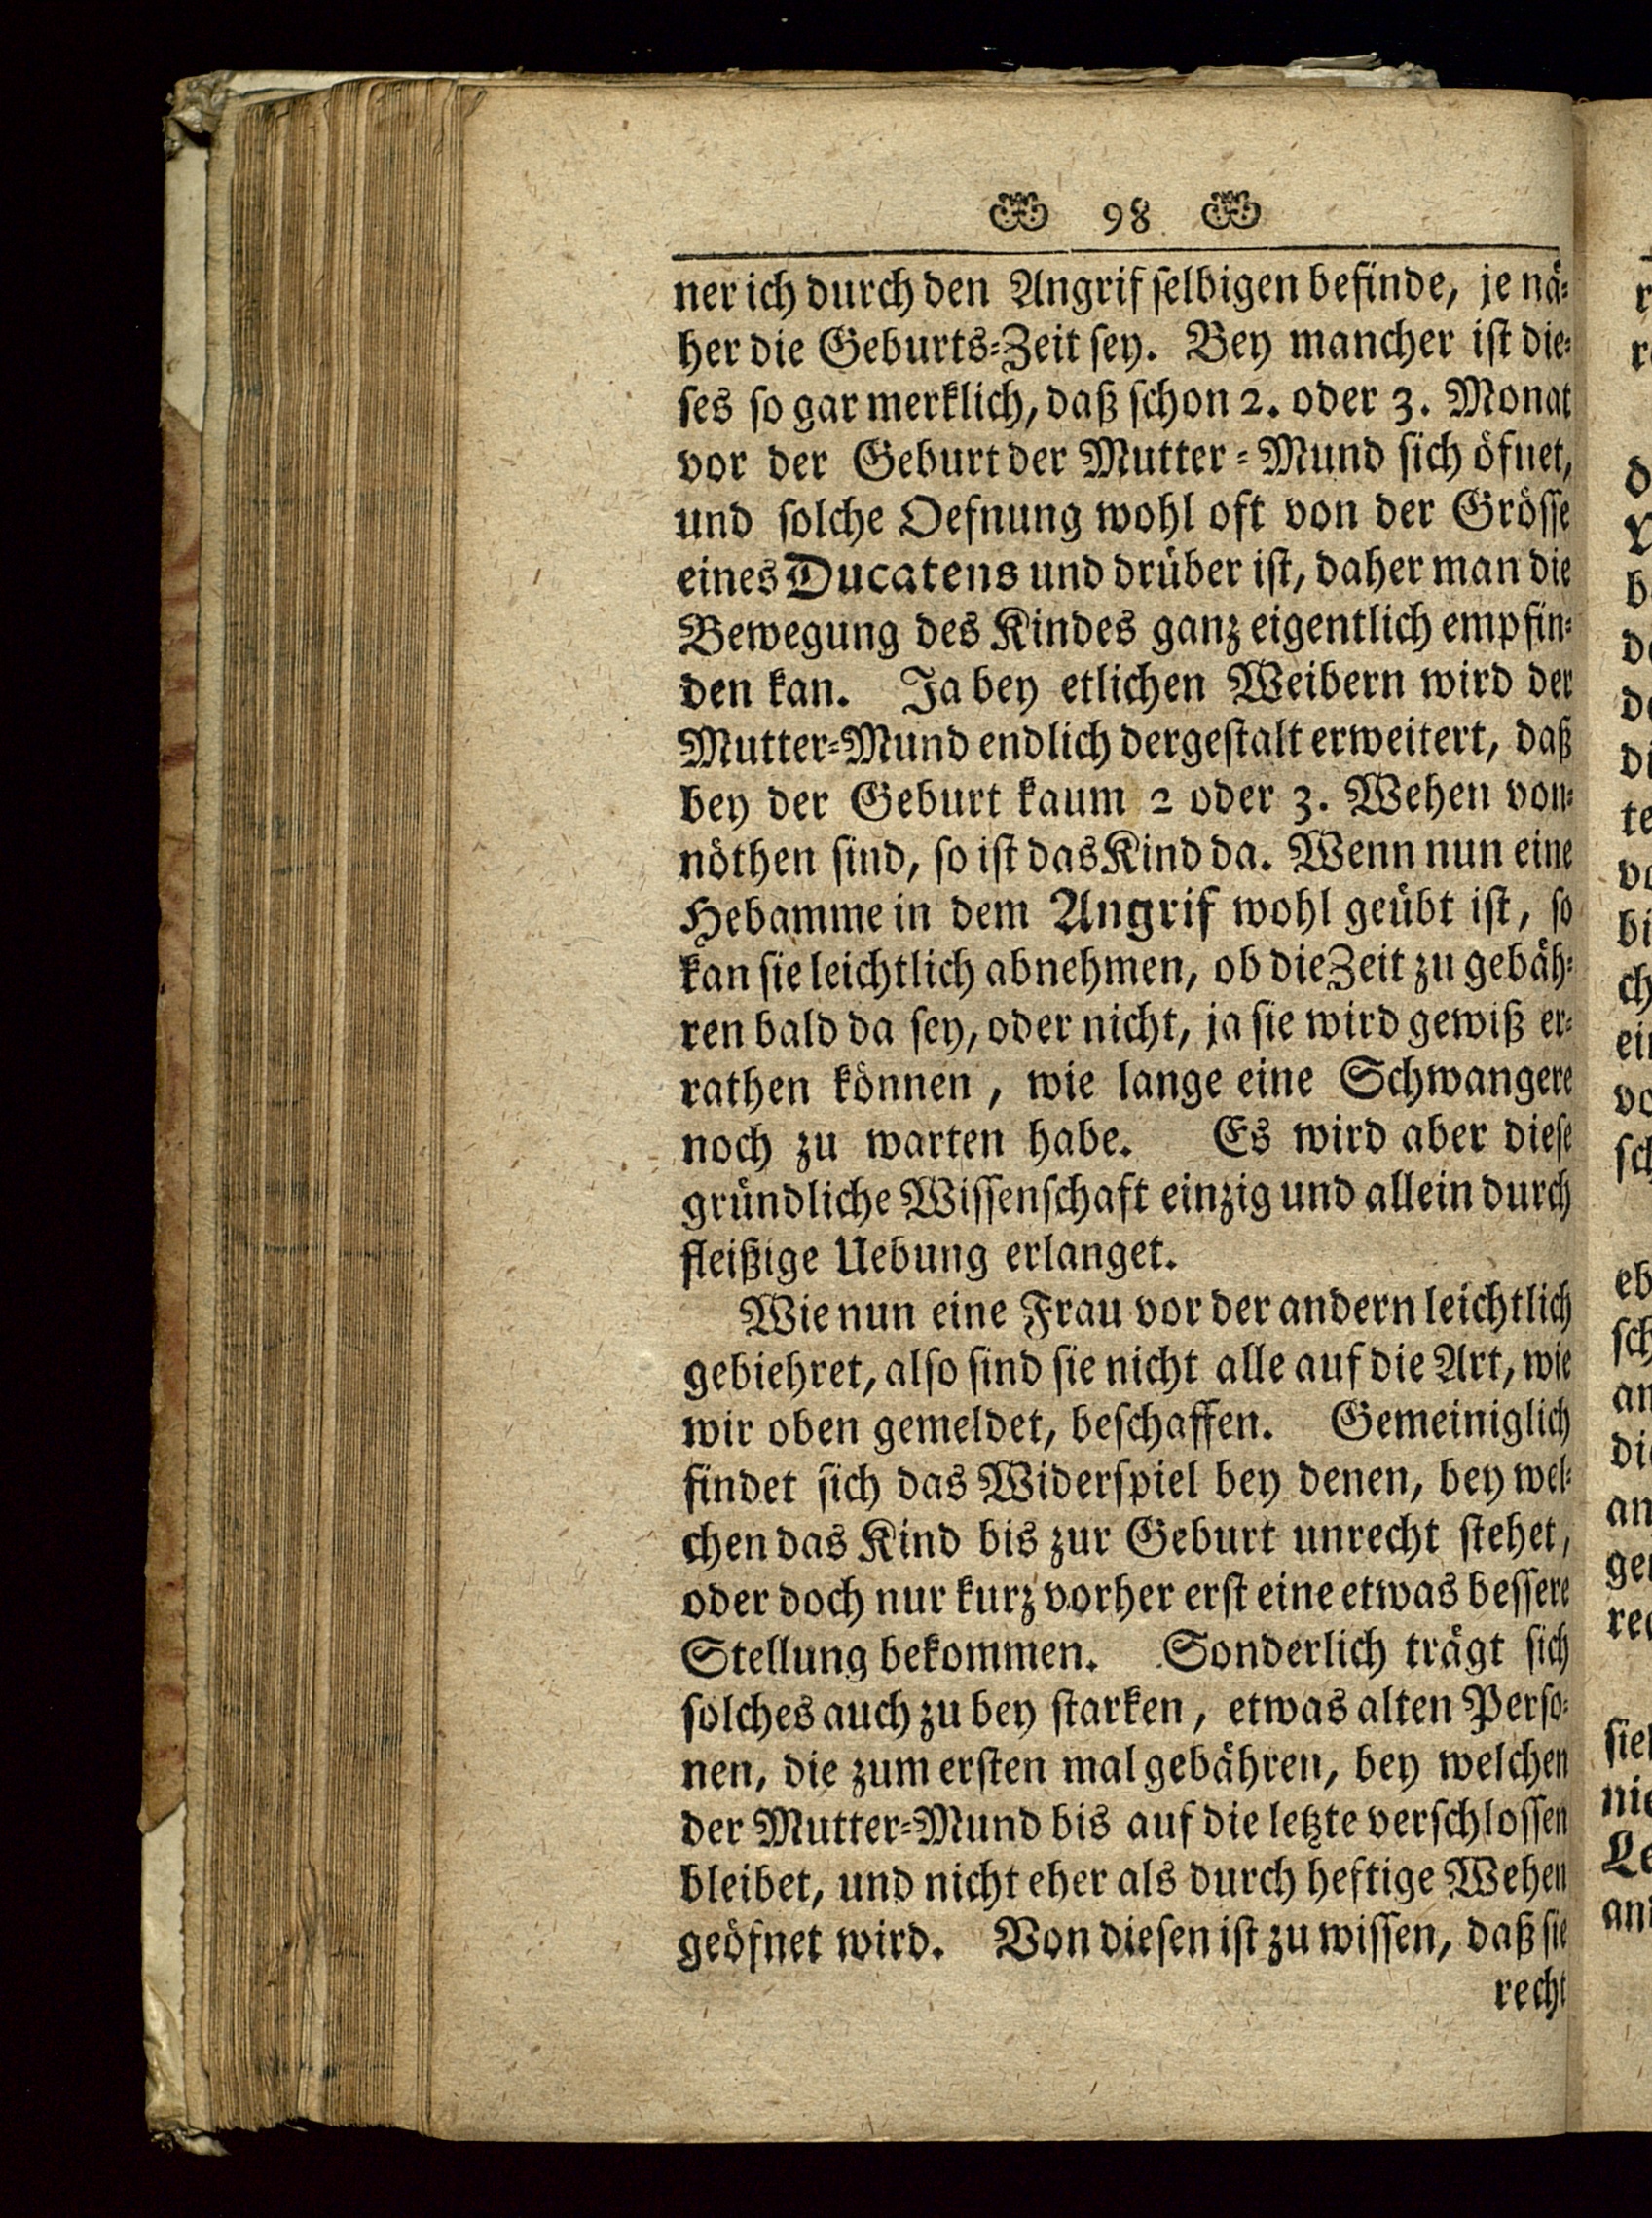 98
ner ich durch den Angrif selbigen befinde, je nä-
her die Geburts-Zeit sey. Bey mancher ist die-
ses so gar merklich, daß schon 2. oder 3. Monat
vor der Geburt der Mutter-Mund sich öfnet,
und solche Oefnung wohl oft von der Grösse
eines Ducatens und drüber ist, daher man die
Bewegung des Kindes ganz eigentlich empfin-
den kan. Ja bey etlichen Weibern wird der
Mutter-Mund endlich dergestalt erweitert, daß
bey der Geburt kaum 2 oder 3. Wehen von-
nöthen sind, so ist das Kind da. Wenn nun eine
Hebamme in dem Angrif wohl geübt ist, so
kan sie leichtlich abnehmen, ob die Zeit zu gebäh-
ren bald da sey, oder nicht, ja sie wird gewiß er-
rathen können, wie lange eine Schwangere
noch zu warten habe. Es wird aber diese
gründliche Wissenschaft einzig und allein durch
fleißige Uebung erlanget.
Wie nun eine Frau vor der andern leichtlich
gebiehret, also sind sie nicht alle auf die Art, wie
wir oben gemeldet, beschaffen. Gemeiniglich
findet sich das Widerspiel bey denen, bey wel-
chen das Kind bis zur Geburt unrecht stehet,
oder doch nur kurz vorher erst eine etwas bessere
Stellung bekommen. Sonderlich trägt sich
solches auch zu bey starken, etwas alten Perso-
nen, die zum ersten mal gebähren, bey welchen
der Mutter-Mund bis auf die letzte verschlossen
bleibet, und nicht eher als durch heftige Wehen
geöfnet wird. Von diesen ist zu wissen, daß sie
recht